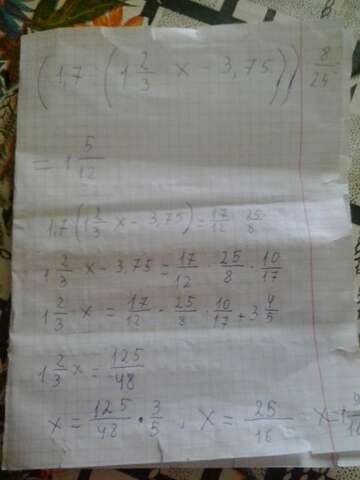 (1,7 (1 2/3 x - 3,75)) 8/25
= 1 5/12
1,7 (1 2/3 x - 3,75) = 17/12 25/8
1 2/3 x - 3,75 = 17/12 · 25/8 · 10/17
1 2/3 · x = 17/12 · 25/8 · 10/17 + 3 4/5
1 2/3 x = 125/48
x = 125/48 · 3/5 , x = 25/16 x = 1 9/16